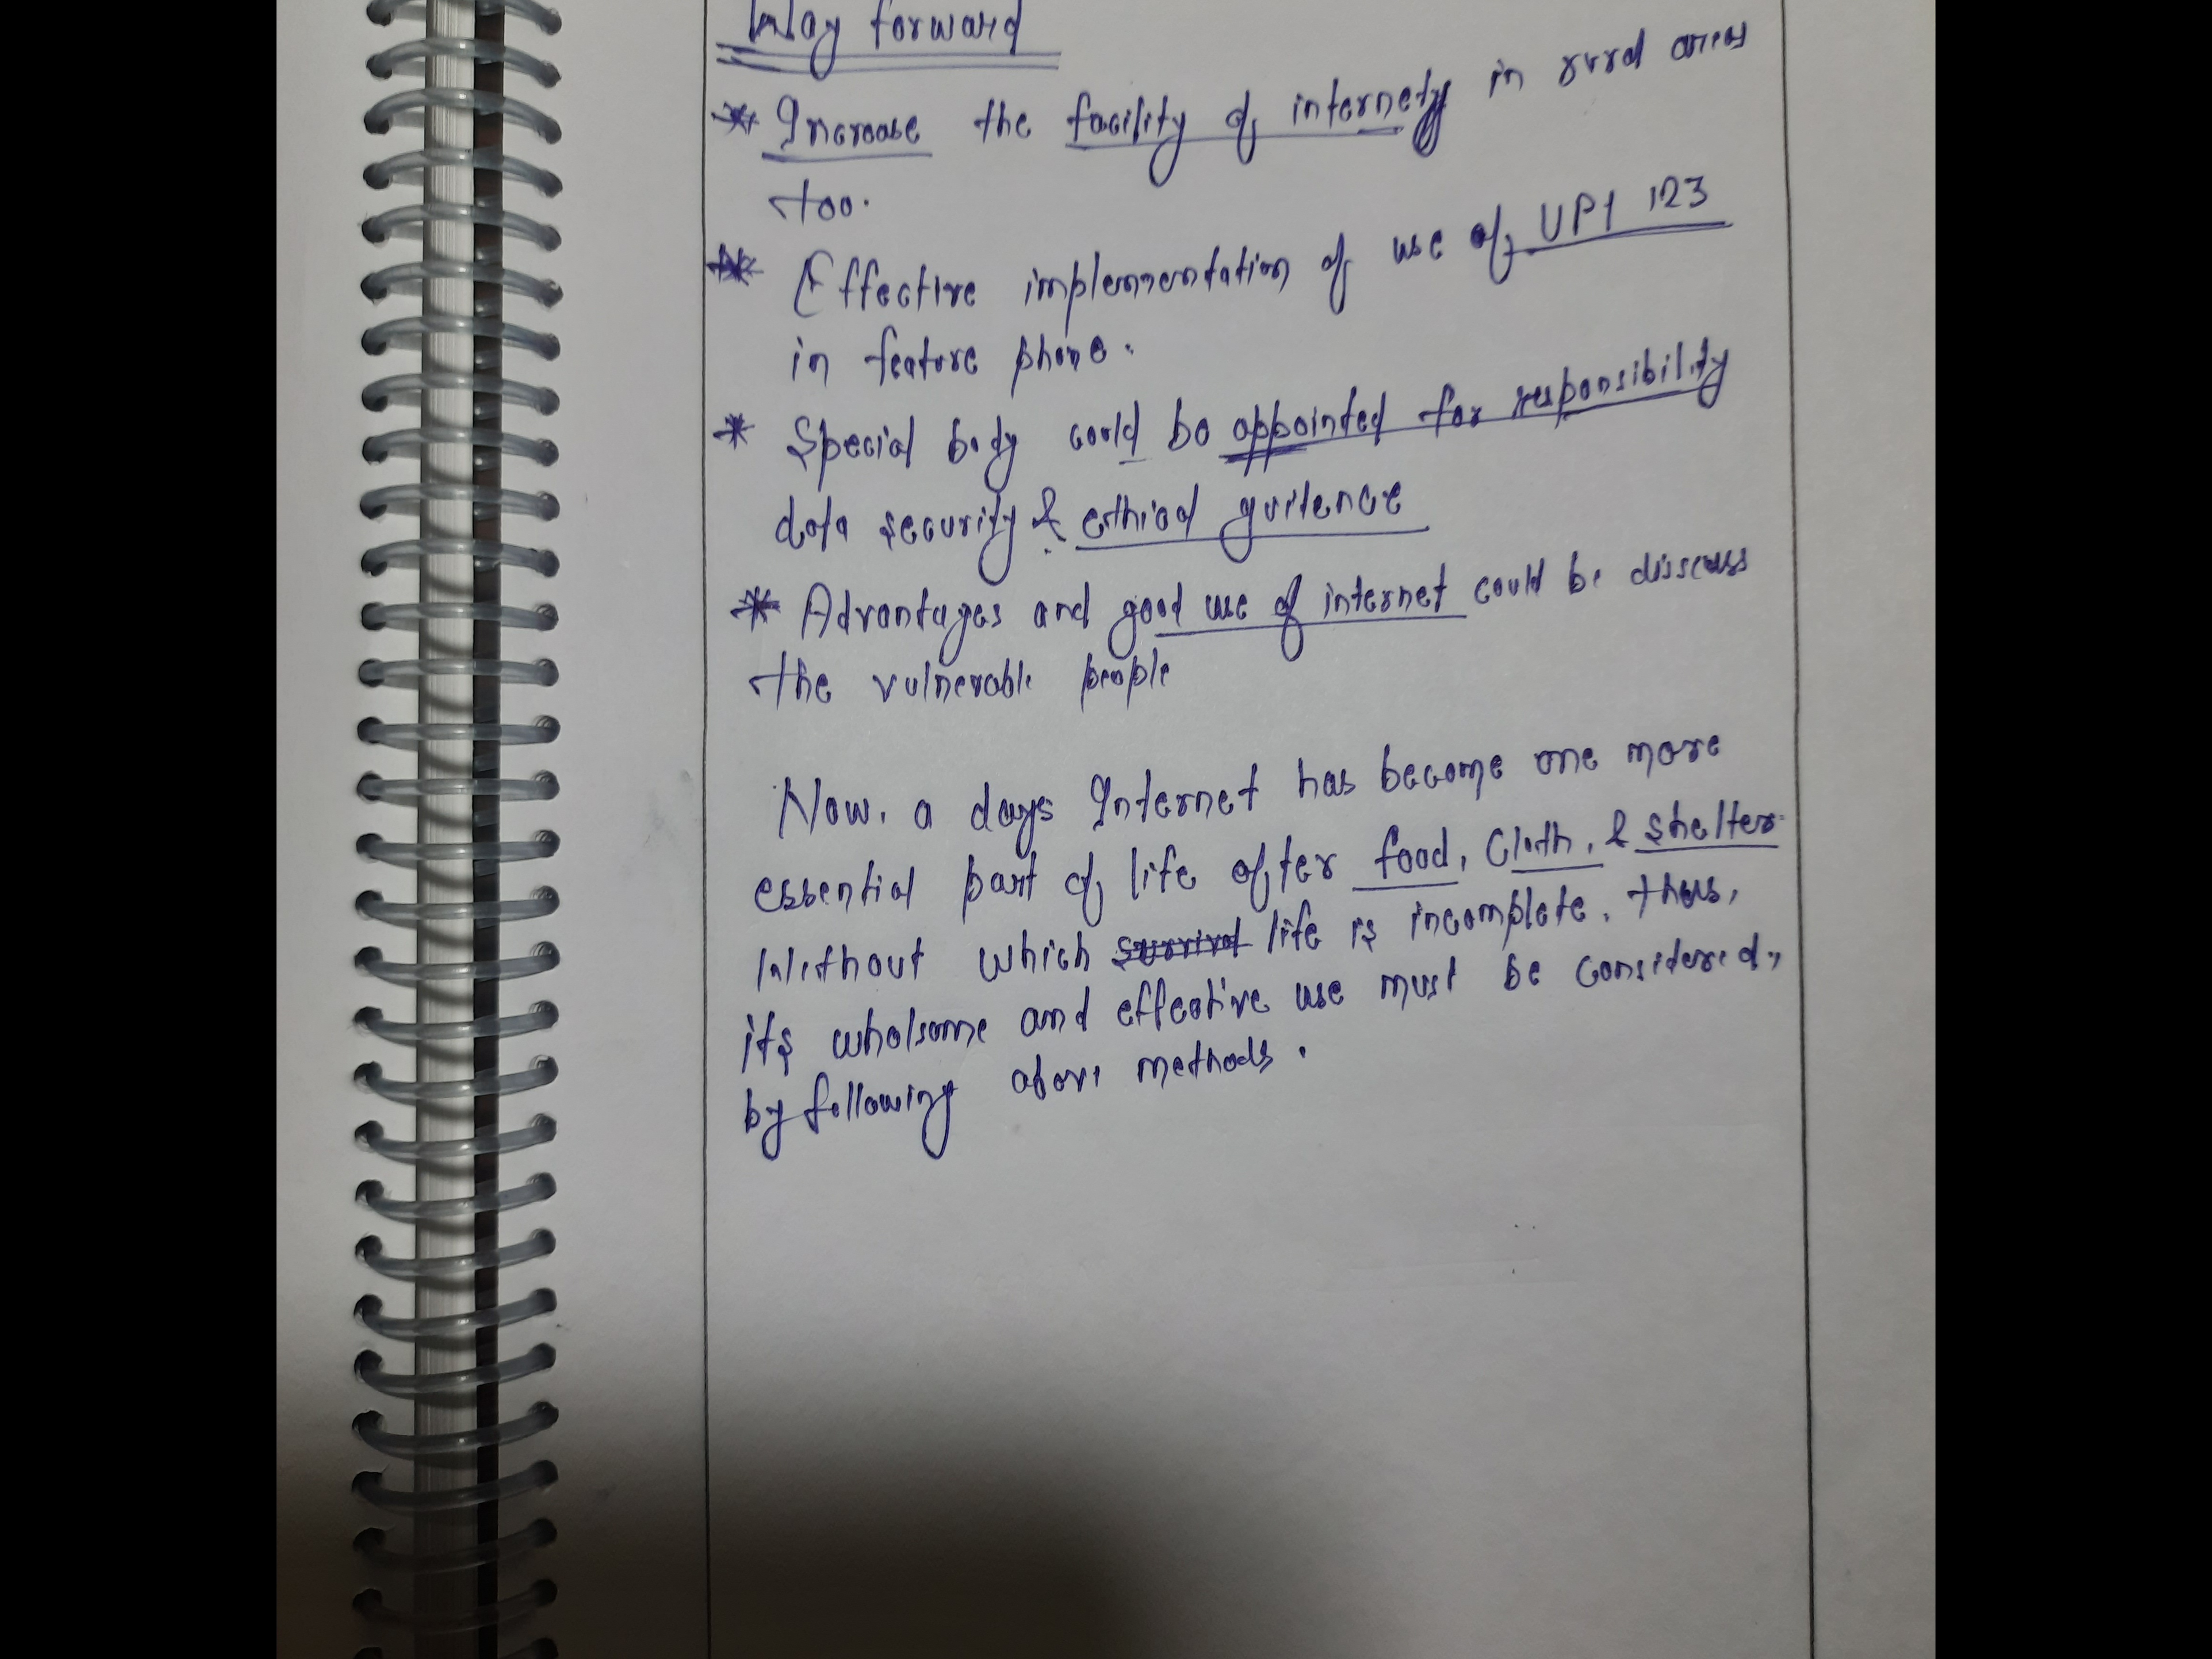 Way forward
* Increase the facility of internety in rural areas
too.
* Effective implementation of use of UPI 123
in feature phone.
* Special body could be appointed for responsibility
data security & ethical guitence
* Advantages and good use of internet could be disscuss
the vulnerable people
Now. a days Internet has become one more
essential part of life after food, Cloth, & shelter
Without which survival life is incomplete. thus,
its wholsome and effective use must be considered,
by following above methods.